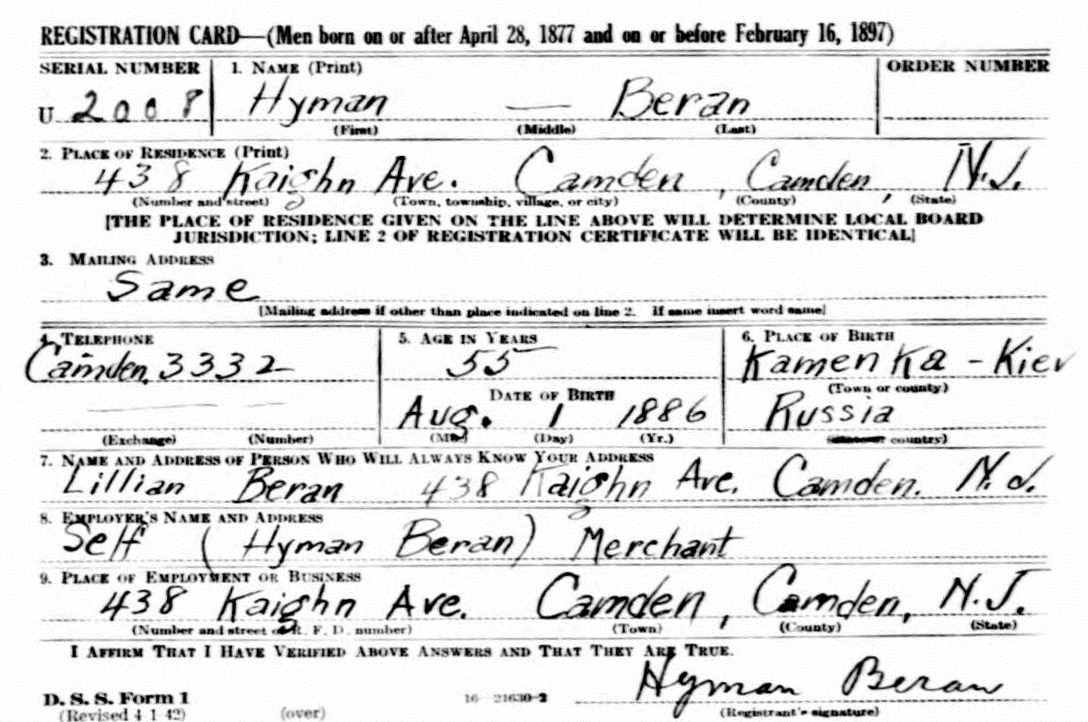 REGISTRATION CARD—(Men born on or after April 28, 1877 and on or before February 16, 1897)
SERIAL NUMBER 1. NAME (Print) ORDER NUMBER
U 2008 Hyman — Beran
(First) (Middle) (Last)
2. PLACE OF RESIDENCE (Print)
438 Kaighn Ave. Camden, Camden, N.J.
(Number and street) (Town, township, village, or city) (County) (State)
[THE PLACE OF RESIDENCE GIVEN ON THE LINE ABOVE WILL DETERMINE LOCAL BOARD
JURISDICTION; LINE 2 OF REGISTRATION CERTIFICATE WILL BE IDENTICAL]
3. MAILING ADDRESS
Same
[Mailing address if other than place indicated on line 2. If same insert word same]
4. TELEPHONE 5. AGE IN YEARS 6. PLACE OF BIRTH
Camden 3332 55 Kamenka - Kiev
DATE OF BIRTH (Town or county)
Aug. 1 1886 Russia
(Exchange) (Number) (Mo.) (Day) (Yr.) country)
7. NAME AND ADDRESS OF PERSON WHO WILL ALWAYS KNOW YOUR ADDRESS
Lillian Beran 438 Kaighn Ave. Camden. N.J.
8. EMPLOYER'S NAME AND ADDRESS
Self (Hyman Beran) Merchant
9. PLACE OF EMPLOYMENT OR BUSINESS
438 Kaighn Ave. Camden, Camden, N.J.
(Number and street or R. F. D. number) (Town) (County) (State)
I AFFIRM THAT I HAVE VERIFIED ABOVE ANSWERS AND THAT THEY ARE TRUE.
Hyman Beran
D. S. S. Form 1 16—21630-2
(Revised 4-1-42) (over) (Registrant's signature)